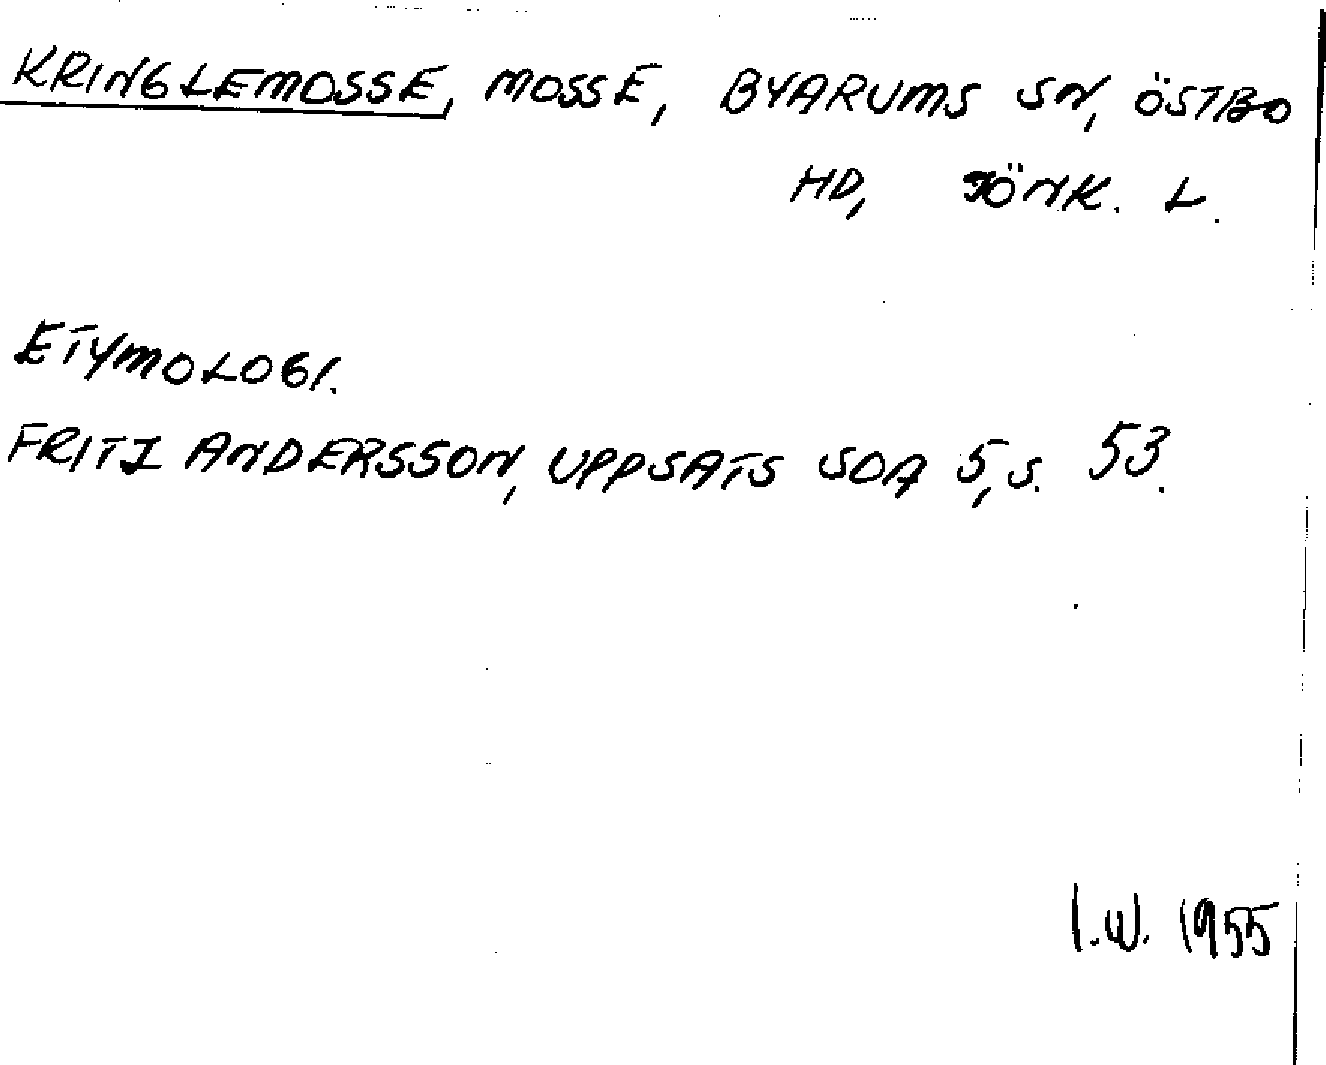 KRINGLEMOSSE, MOSSE, BYARUMS SN, ÖSTBO
HD, JÖNK. L.
ETYMOLOGI.
FRITZ ANDERSSON, UPPSATS SOA 5, S. 53.
I.W. 1955